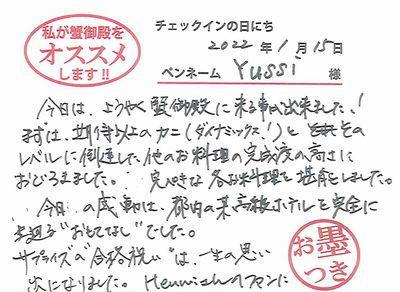 私が蟹御殿を
オススメ
します!!
チェックインの日にち
2022年 1月 15日
ペンネーム Yussi 様
今日は、ようやく蟹御殿に来る事が出来ました!
まずは、期待以上のカニ(ダイナミックス!)と その
レベルに到達した他のお料理の完成度の高さに
おどろきました。 完ぺきな各お料理を堪能しました。
今日の感動は、都内の某高級ホテルを完全に
"おもてなし"でした。
サプライズの"合格祝い"は、一生の思い
になりました。 のファンに
お墨
つき